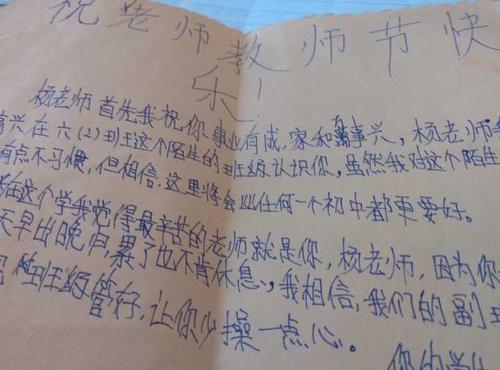 祝老师教师节快
乐！
杨老师首先我祝你事业有成，家和万事兴，杨老师我
高兴在六(2)班这个陌生的班级认识你，虽然我对这个陌生
有点不习惯，但相信，这里将会比任何一个初中都更要好。
在这个学我觉得最辛苦的老师就是你，杨老师，因为你
天早出晚归，累了也不肯休息，我相信，我们的副班
班级管好，让你少操一点心。
你的学生